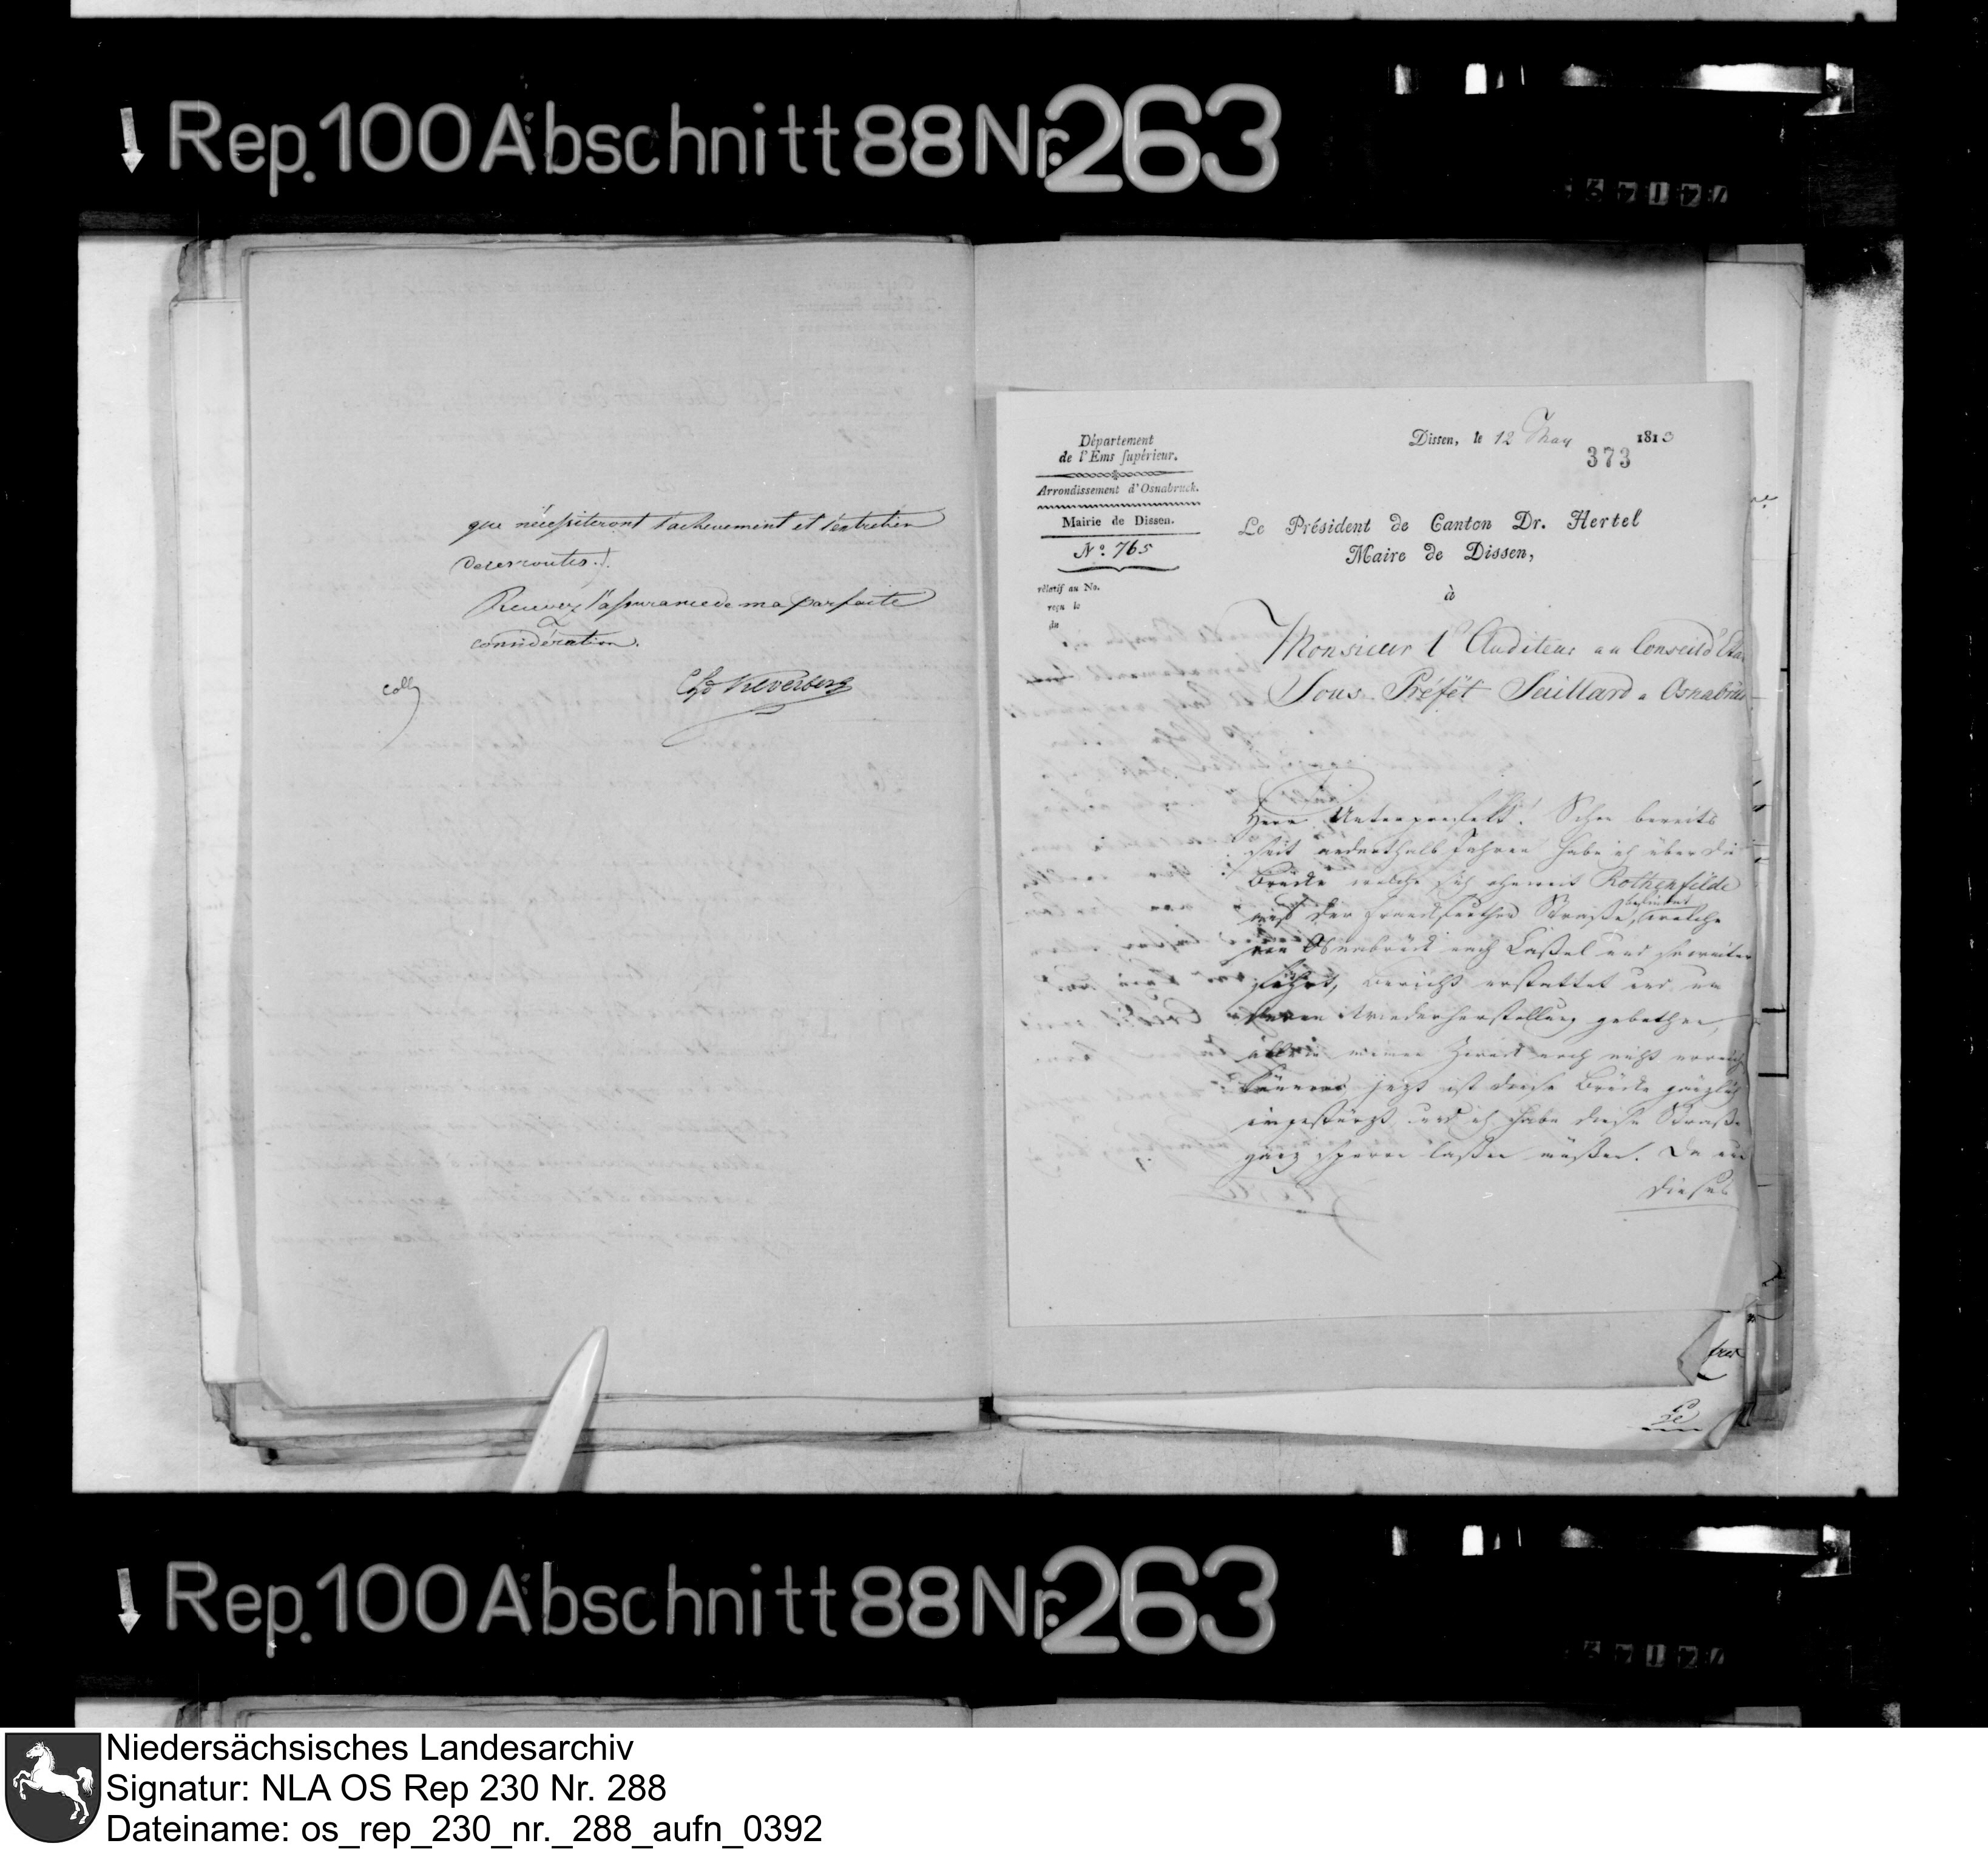 Rep. 100 Abschnitt 88 Nr. 263
que nécessiteront l'achevement et l'entretien
de ces routes.
Recevez l'assurance de ma parfaite
considération.
coll
Keverberg
Département
de l'Ems supérieur.
Arrondissement d'Osnabruck.
Mairie de Dissen.
Nº. 765
rélatif au No.
reçu le
du
Dissen, le 12 May 1813
373
Le Président de Canton Dr. Hertel
Maire de Dissen,
à
Monsieur l'Auditeur au Conseil d'Eta
Sous-Préfét Juillard a Osnabrüc
Herr Unterpraefekt! Schon bereits
seit anderthalb Jahren habe ich über die
Brücke welche sich ohnweit Rothenfelde
auf der Franckfurther Straße befindet, welche
von Osnabrück nach Cassel und so weiter
führt, Bericht erstattet und um
deren Wiederherstellung gebethen,
allein meinen Zweck noch nicht erreich
können, jezt ist diese Brücke gänzlich
eingestürzt und ich habe diese Straße
ganz sperren laßen müßen. Da nun
dieses
Rep. 100 Abschnitt 88 Nr. 263
Niedersächsisches Landesarchiv
Signatur: NLA OS Rep 230 Nr. 288
Dateiname: os_rep_230_nr._288_aufn_0392